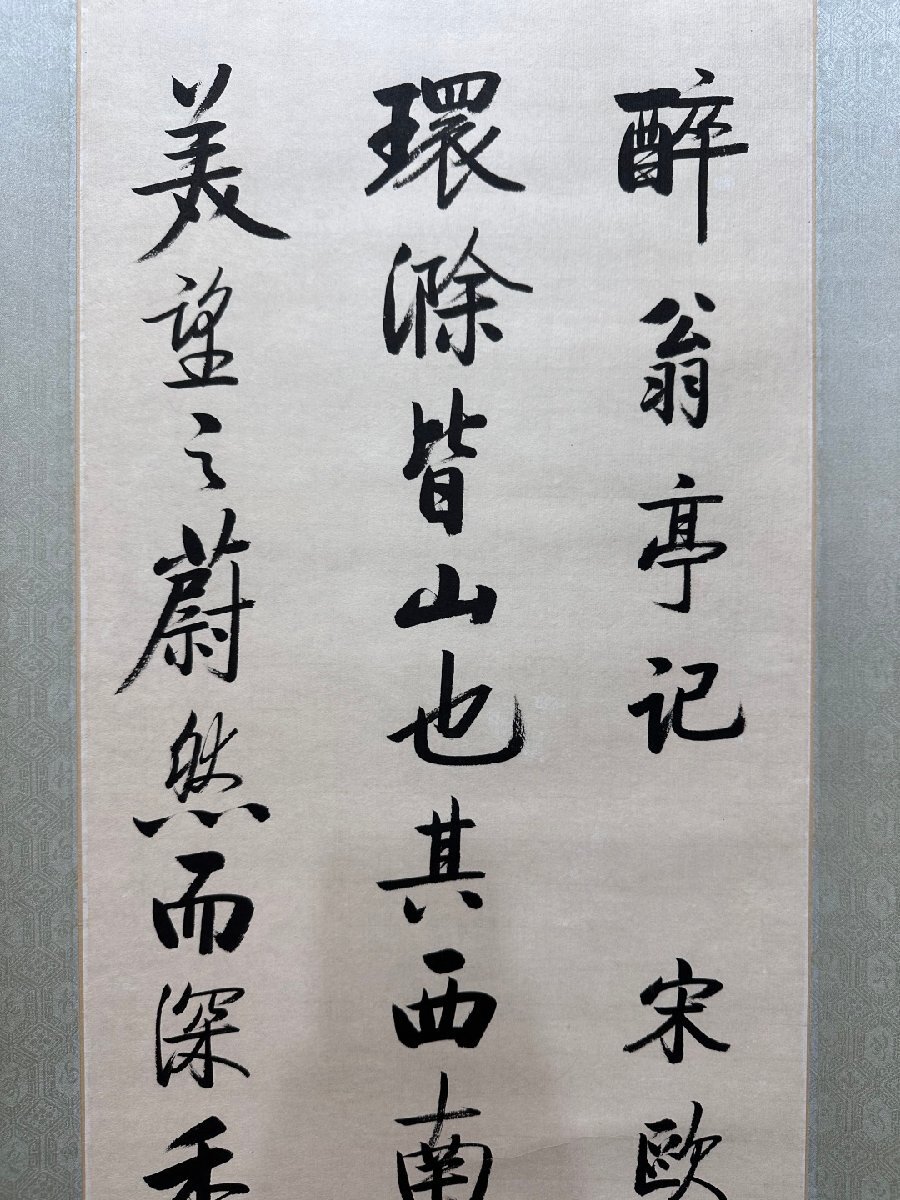 醉翁亭记 宋欧
環滁皆山也其西南
美望之蔚然而深